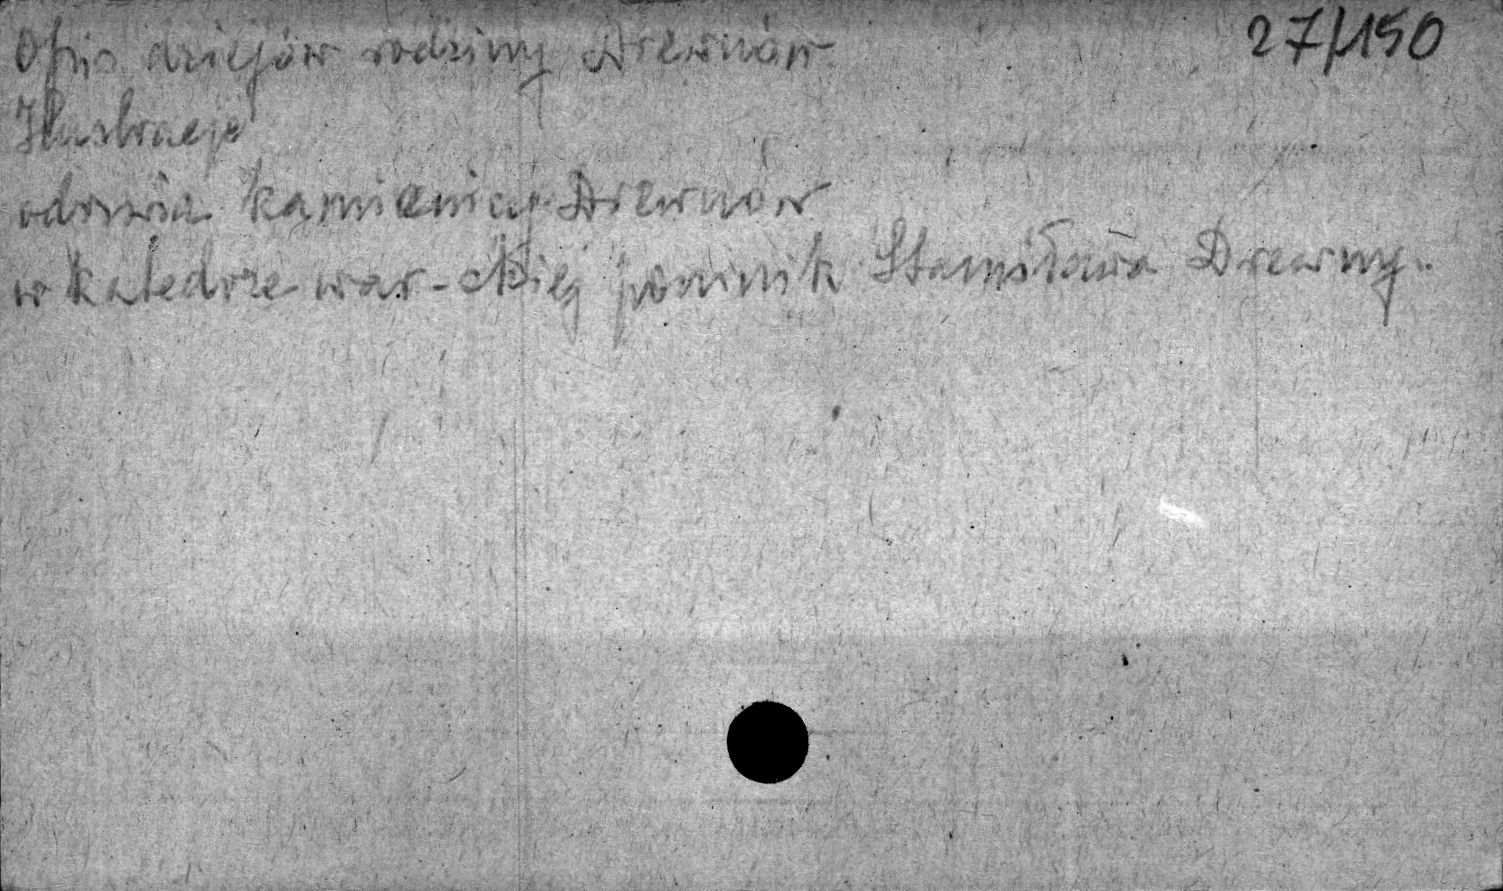 27/150
Opis dziejów rodziny Drewnów
Ilustracje
odrzwia kamienicy Drewnów
w katedrze war-skiej pomnik Stanisława Drewny.